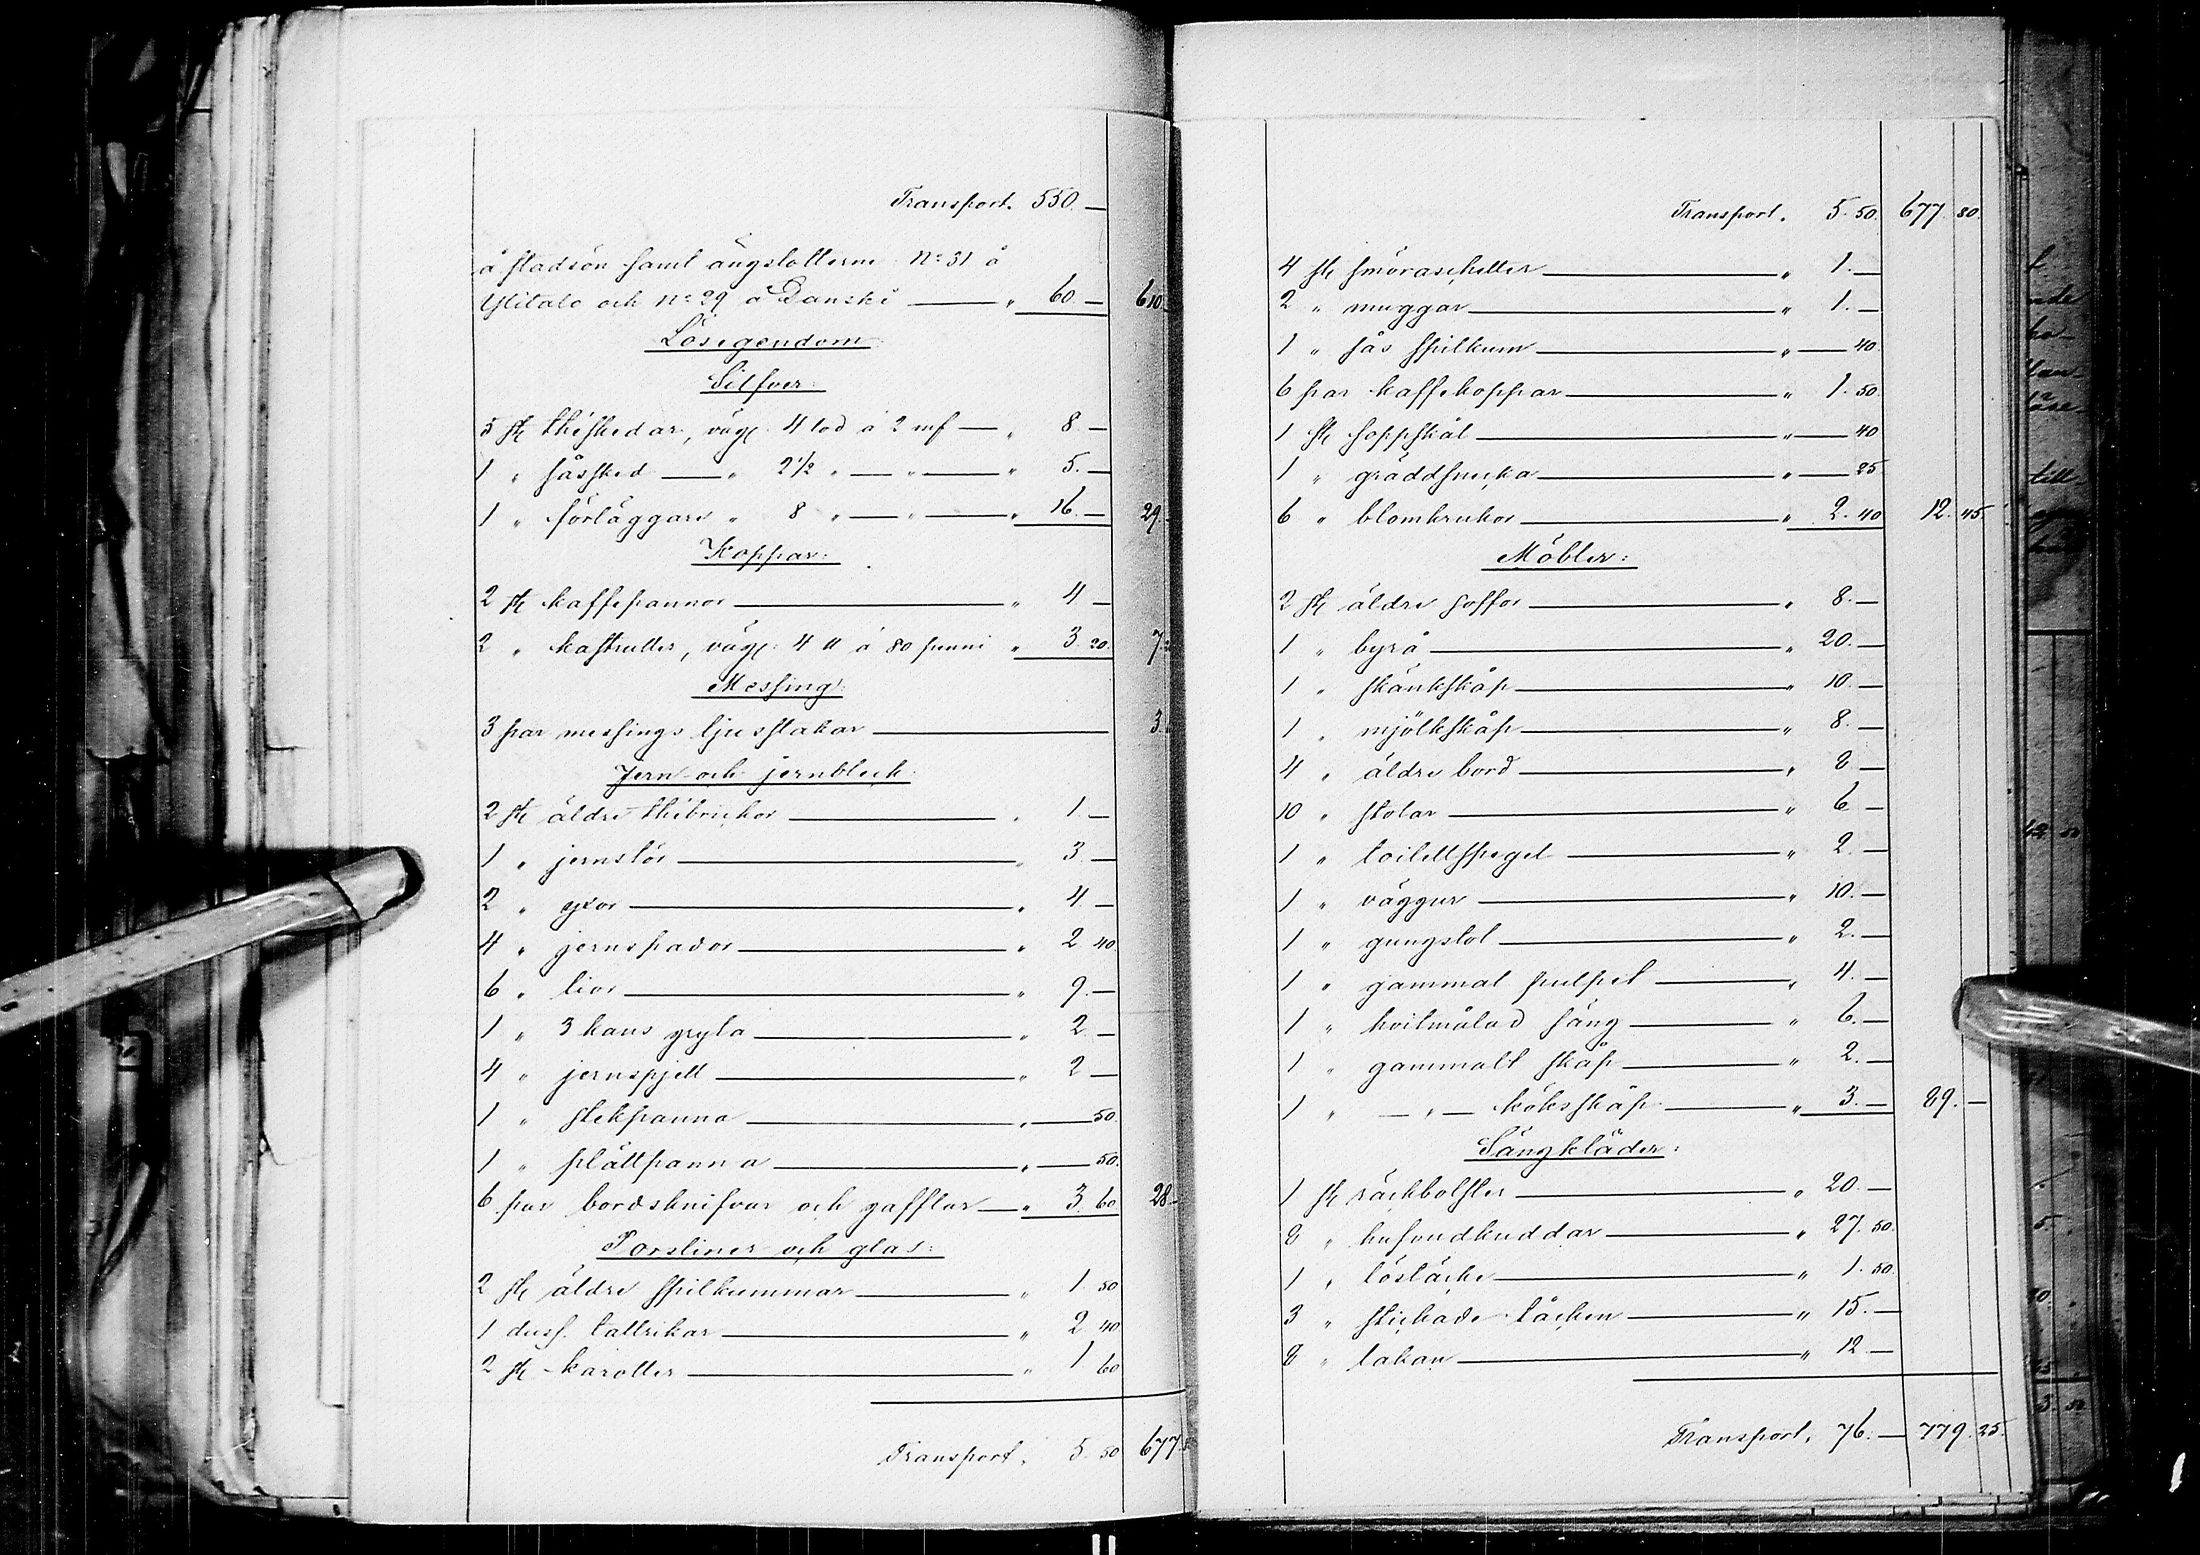 Transport. 550. —
å stadsön samt ängslotterne No 31 å
Ylitalo och No 29 å Danski — " 60 — 610.
Lösegendom
Silfver:
5 st théskedar, väg. 4 lod á 2 mf — " 8. —
1 " såssked — " 2 1/2 " — " — " 5. —
1 " förläggare " 8 " — " — " 16. — 29.
Koppar:
2 st kaffepannor — " 4 —
2 " kastruller, väg: 4 ℔ á 80 penni " 3. 20. 7.
Messing:
3 par messings ljusstakar — 3.
Jern- och jernbleck:
2 st äldre thébrickor — " 1. —
1 " jernstör — " 3. —
2 " yxor — " 4 —
4 " jernspador — " 2 40
6 " liar — " 9. —
1 " 3 kans gryta — " 2. —
4 " jernspjell — " 2 —
1 " stekpanna — " — 50
1 " plättpanna — " — 50.
6 par bordsknifvar och gafflar — " 3. 60 28
Porsliner och glas:
2 st äldre spilkummar — " 1. 50
1 duss. tallrikar — " 2 40
2 st karotter — " 1 60
Transport. 5. 50 677.
Transport. 5. 50. 677. 80.
4 st smöraschetter — " 1. —
2 " muggar — " 1. —
1 " sås spilkum — " — 40.
6 par kaffekoppar — " 1. 50.
1 st soppskål — " — 40
1 " gräddsnecka — " — 25
6 " blomkrukor — " 2. 40 12. 45.
Möbler:
2 st äldre soffor — " 8. —
1 " byrå — " 20. —
1 " skänkskåp — " 10. —
1 " mjölkskåp — " 8. —
4 " äldre bord — " 8 —
10 " stolar — " 6 —
1 " toilettspegel — " 2. —
1 " väggur — " 10. —
1 " gungstol — " 2. —
1 " gammal pulpet — " 4. —
1 " hvitmålad säng — " 6. —
1 " gammalt skåp — " 2. —
1 " — " — köksskåp — " 3. — 89. —
Sängkläder:
1 st räckbolster — " 20. —
8 " hufvudkuddar — " 27. 50.
1 " löstäcke — " 1. 50.
3 " stickade täcken — " 15. —
8 " lakan — " 12 —
Transport. 76. — 779. 25.